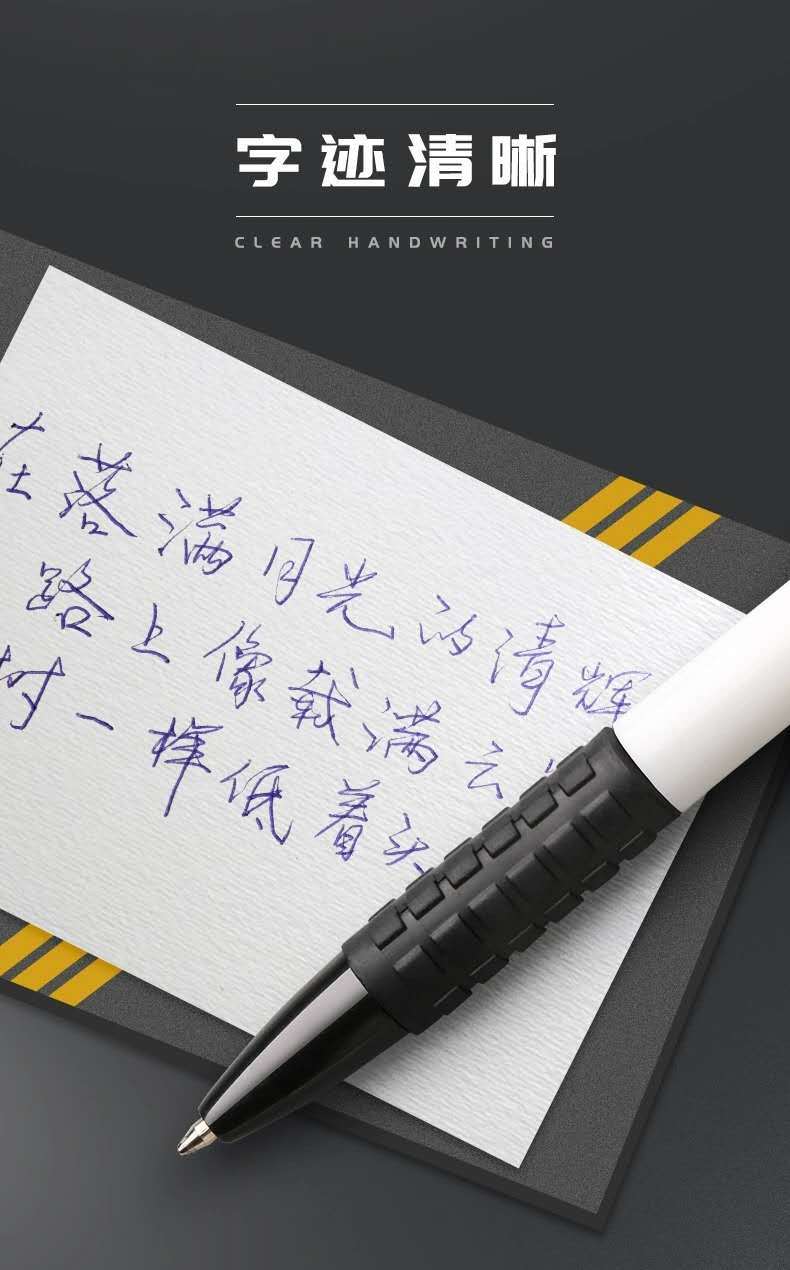 字迹清晰
CLEAR HANDWRITING
在落满月光的清辉
路上像载满云
树一样低着头